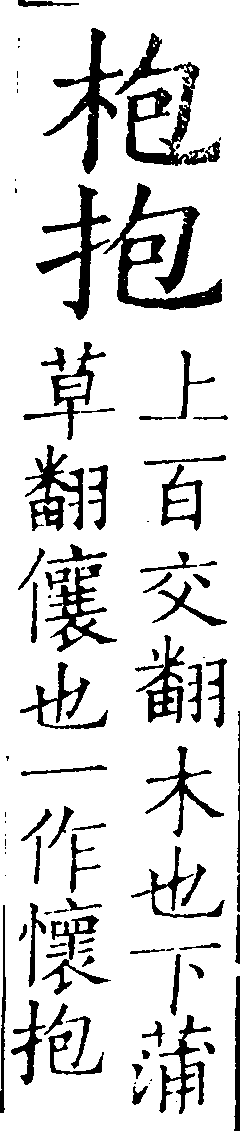 枹抱
上百交翻木也下蒲
草翻儴也一作懷抱